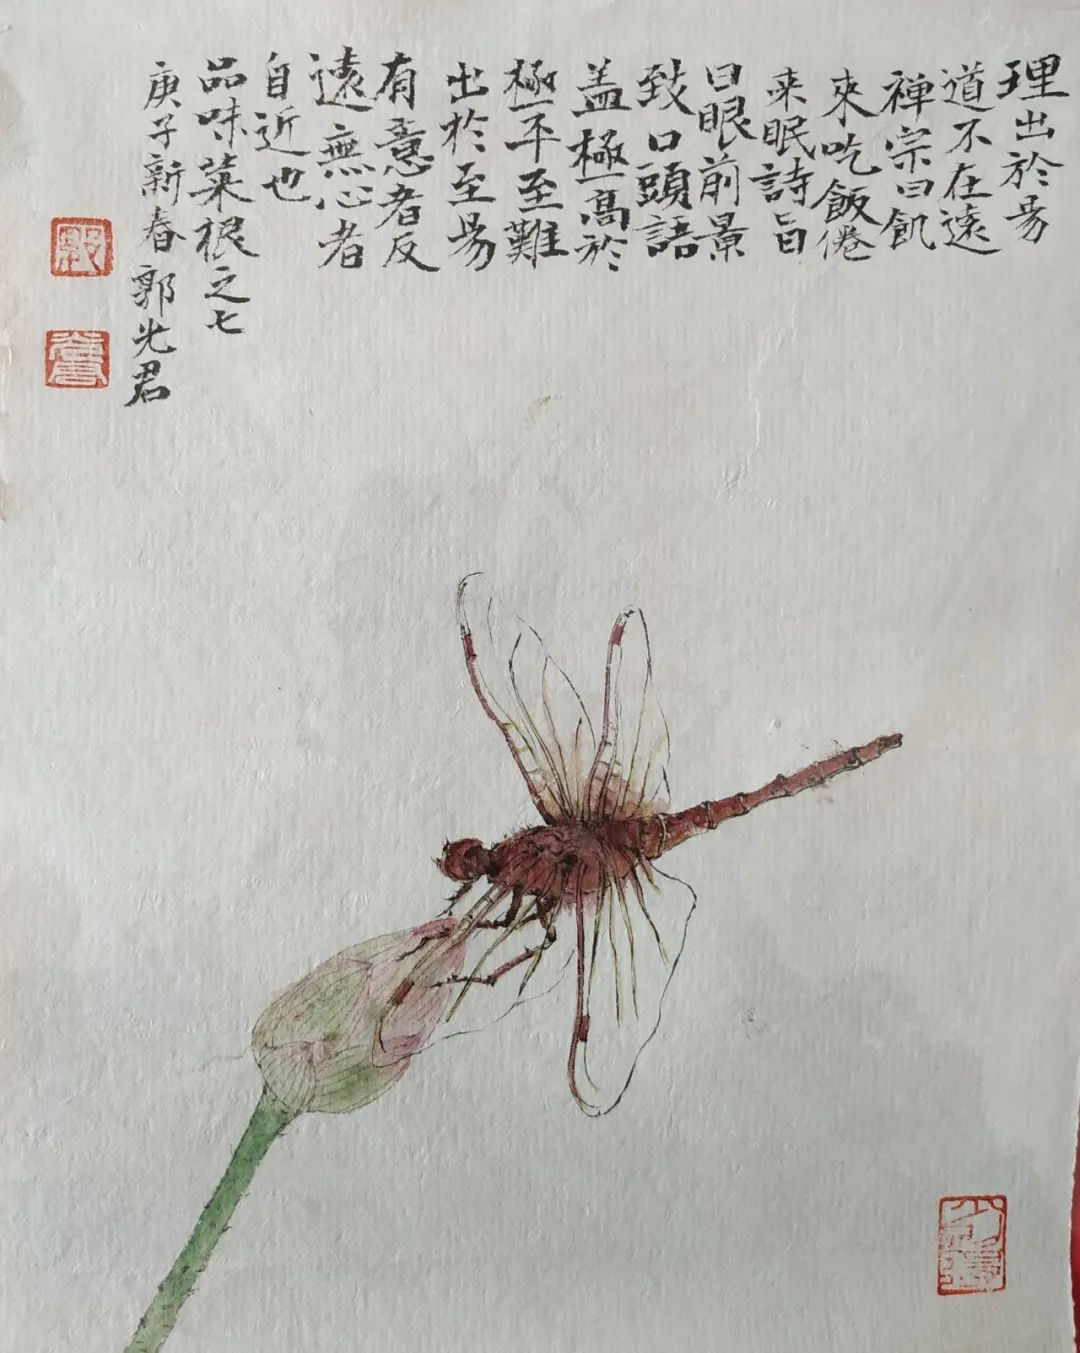 理出於易
道不在遠
禅宗曰飢
來吃飯倦
来眠詩旨
曰眼前景
致口頭語
盖極高於
極平至難
出於至易
有意者反
遠無心者
自近也
品味菜根之七
庚子新春郭光君